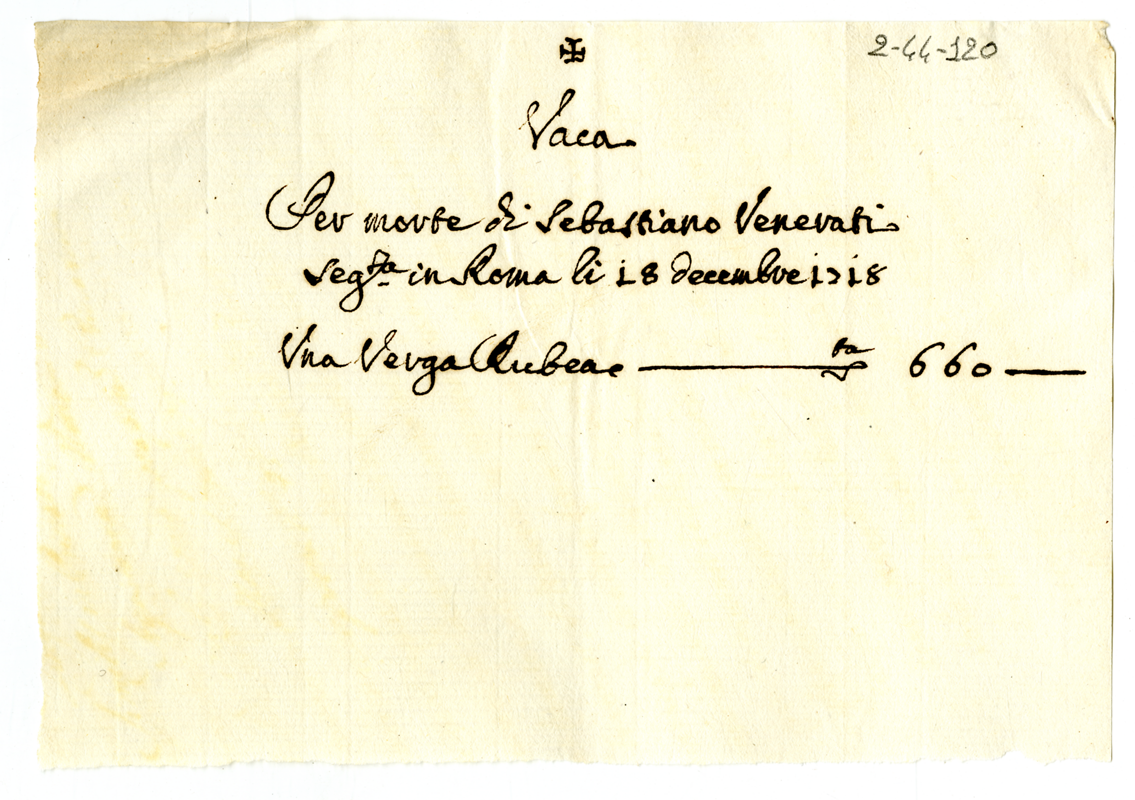 2-44-120
✠
Vaca
Per morte di Sebastiano Venerati
Seg.ta in Roma li 18 decembre 1718
Una Verga Rubea 660